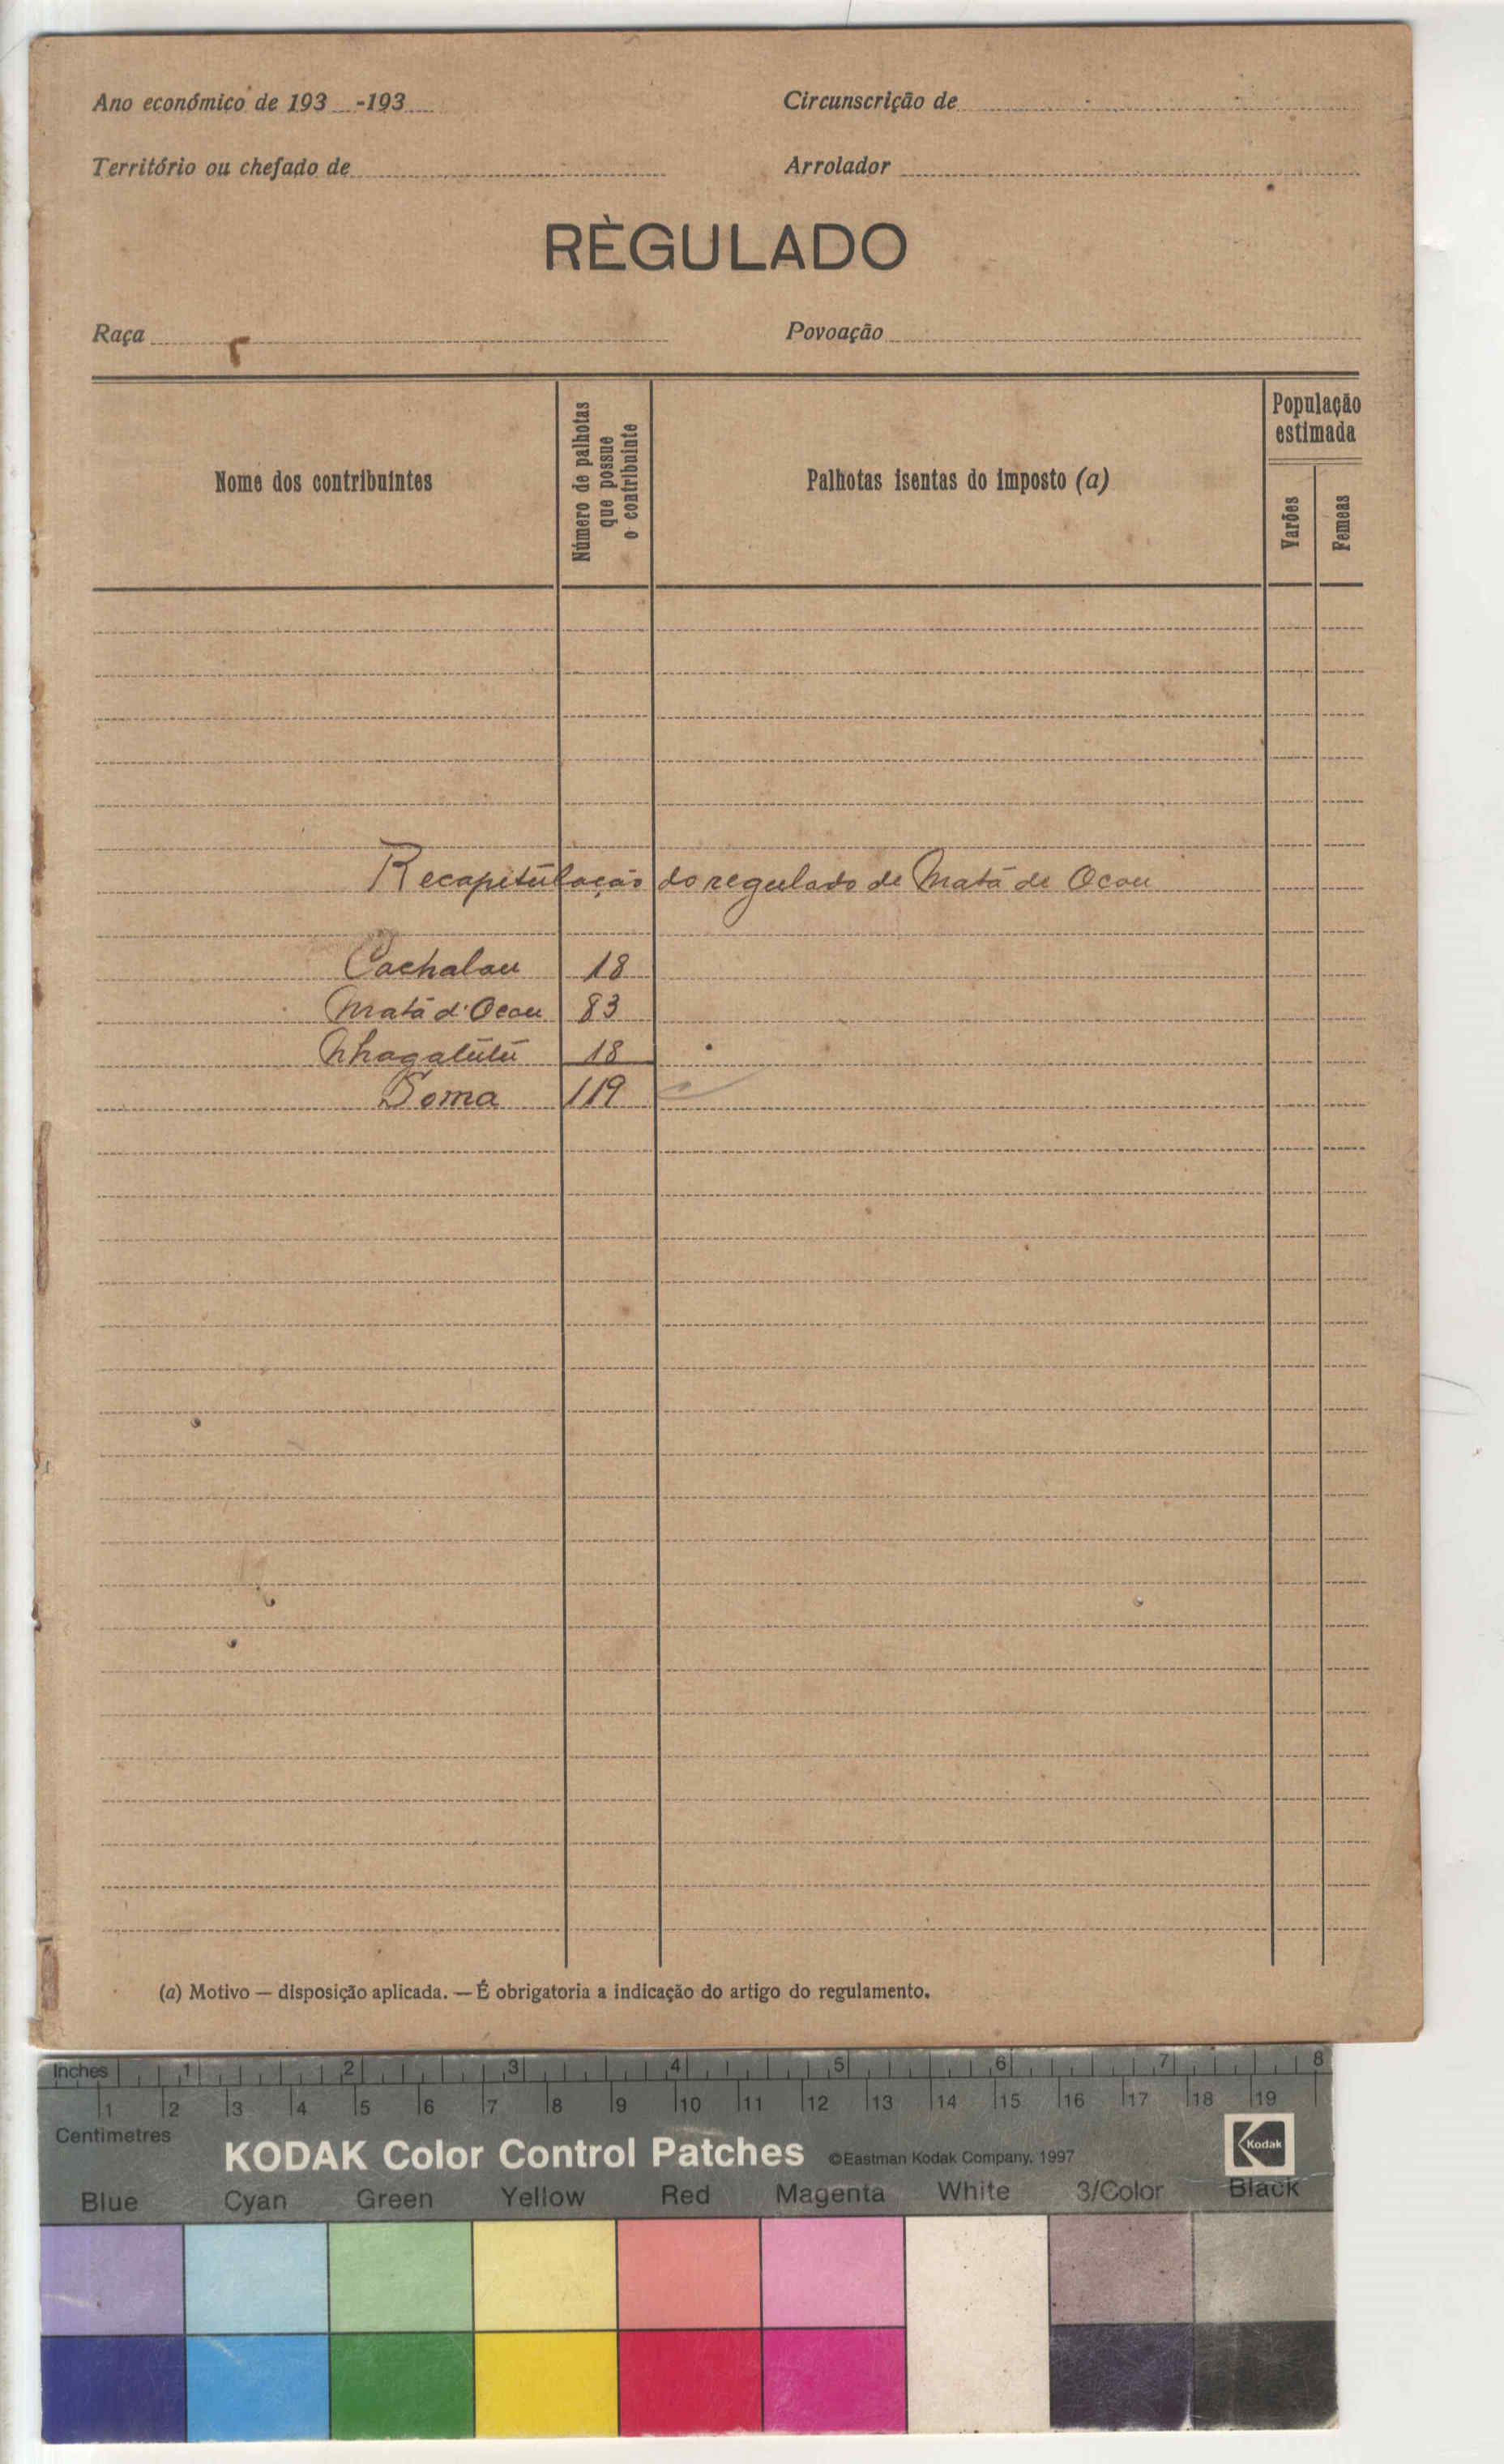 Ano económico de 193 -193
Circunscrição de
Território ou chefado de
Arrolador
RÈGULADO
Raça
Povoação
Nome dos contribuintes
Número de palhotas que possue o contribuinte
Palhotas isentas do imposto (a)
População estimada
Varões
Femeas
Recapitúlação do regulado de Matá de Ocou
Cachalau 18
Matá d'Ocou 83
Nhagalútú 18
Soma 119
(a) Motivo — disposição aplicada. — É obrigatoria a indicação do artigo do regulamento.
Inches 1 2 3 4 5 6 7 8
1 2 3 4 5 6 7 8 9 10 11 12 13 14 15 16 17 18 19
Centimetres
KODAK Color Control Patches ©Eastman Kodak Company, 1997 Kodak
Blue Cyan Green Yellow Red Magenta White 3/Color Black